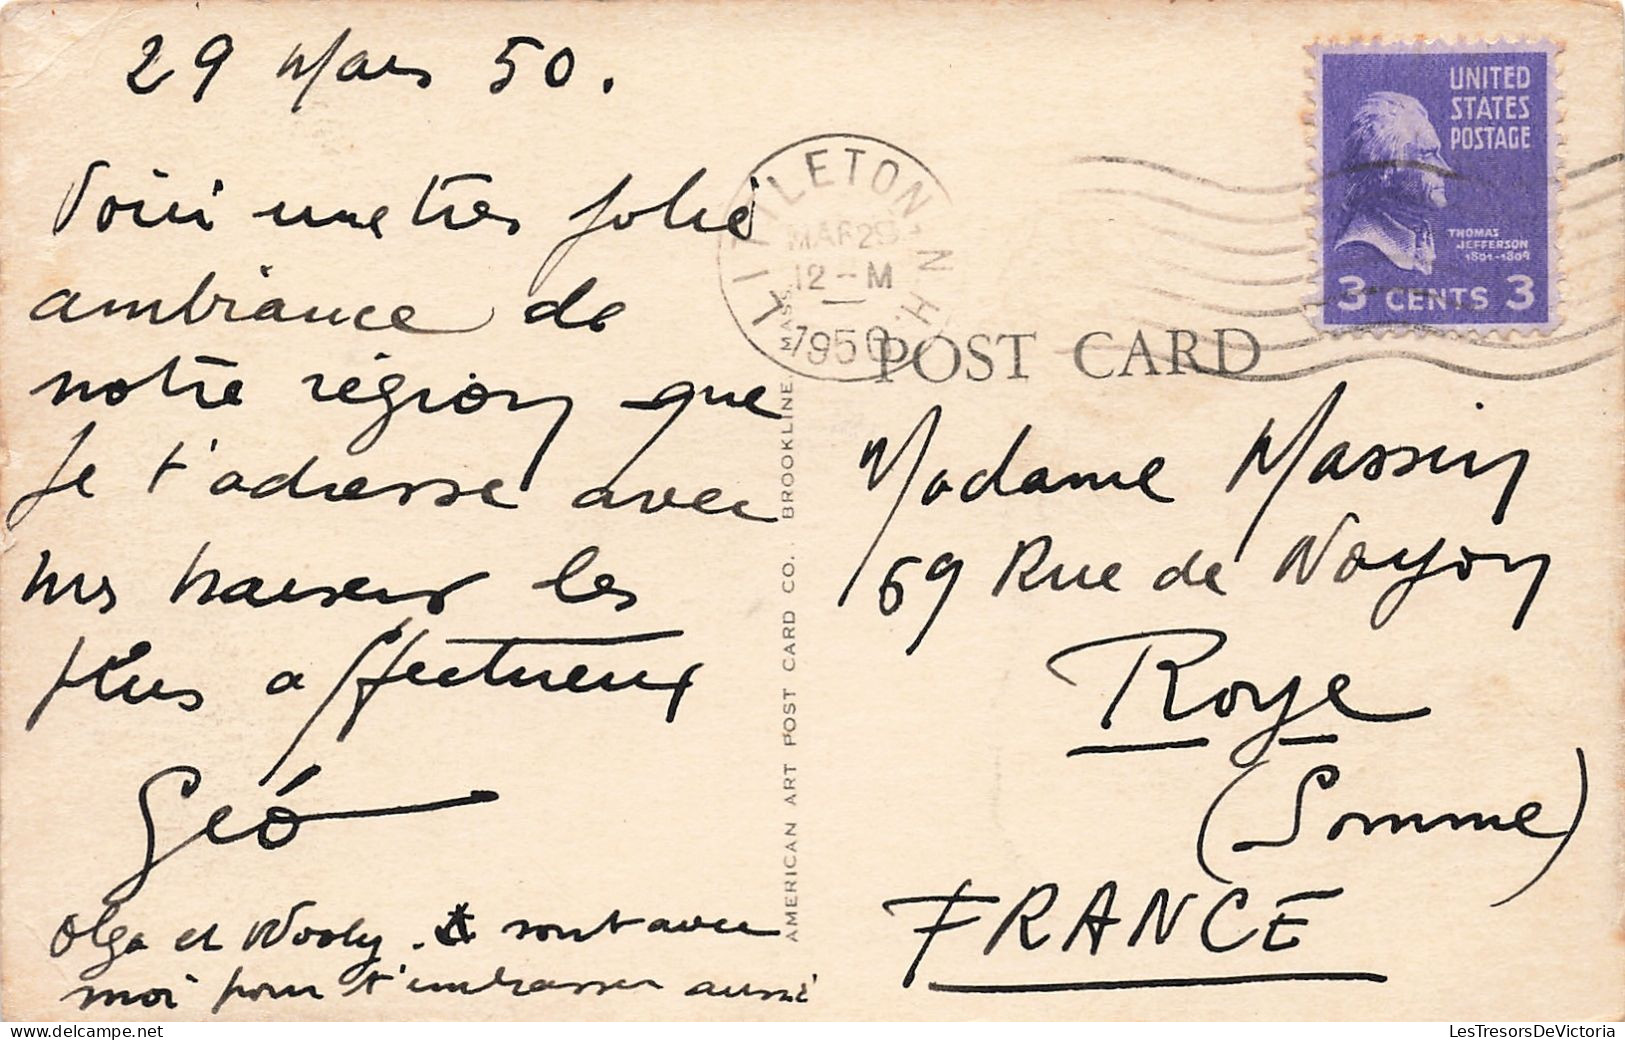 29 Mars 50.
Voici une très jolie
ambiance de
notre région que
je t'adresse avec
mes baisers les
plus affectueux
Géo
Olga et Wooly. sont avec
moi pour t'embrasser aussi
LITTLETON N.H.
MAR 29
12 -M
1950
UNITED
STATES
POSTAGE
THOMAS
JEFFERSON
1801-1809
3 CENTS 3
POST CARD
AMERICAN ART POST CARD CO., BROOKLINE, MASS.
Madame Massin
69 Rue de Noyon
Roye
(Somme)
FRANCE
LesTresorsDeVictoria